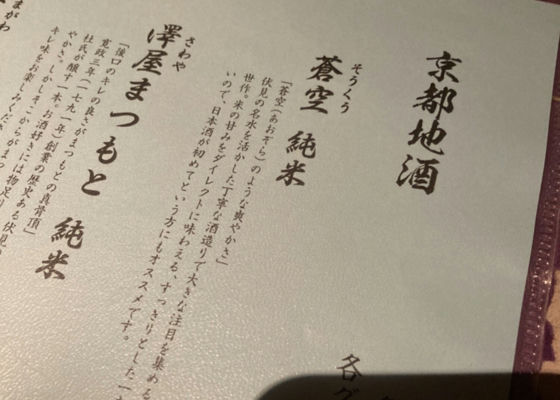 京都地酒
そうくう
蒼空 純米
「蒼空(あおぞら)のような爽やかさ」
伏見の名水を活かした丁寧な酒造りで大きな注目を集める
世作。米の甘みをダイレクトに味わえる、すっきりとした一
いので、日本酒が初めてという方にもオススメです。
さわや
澤屋まつもと 純米
「後口のキレの良さがまつもとの真骨頂」
寛政三年(一七九一年)創業の歴史ある伏見
杜氏が醸す一本。お酒好きには物足り
やかさ。しかしそ
キレ味をお楽しみくださ
各グ